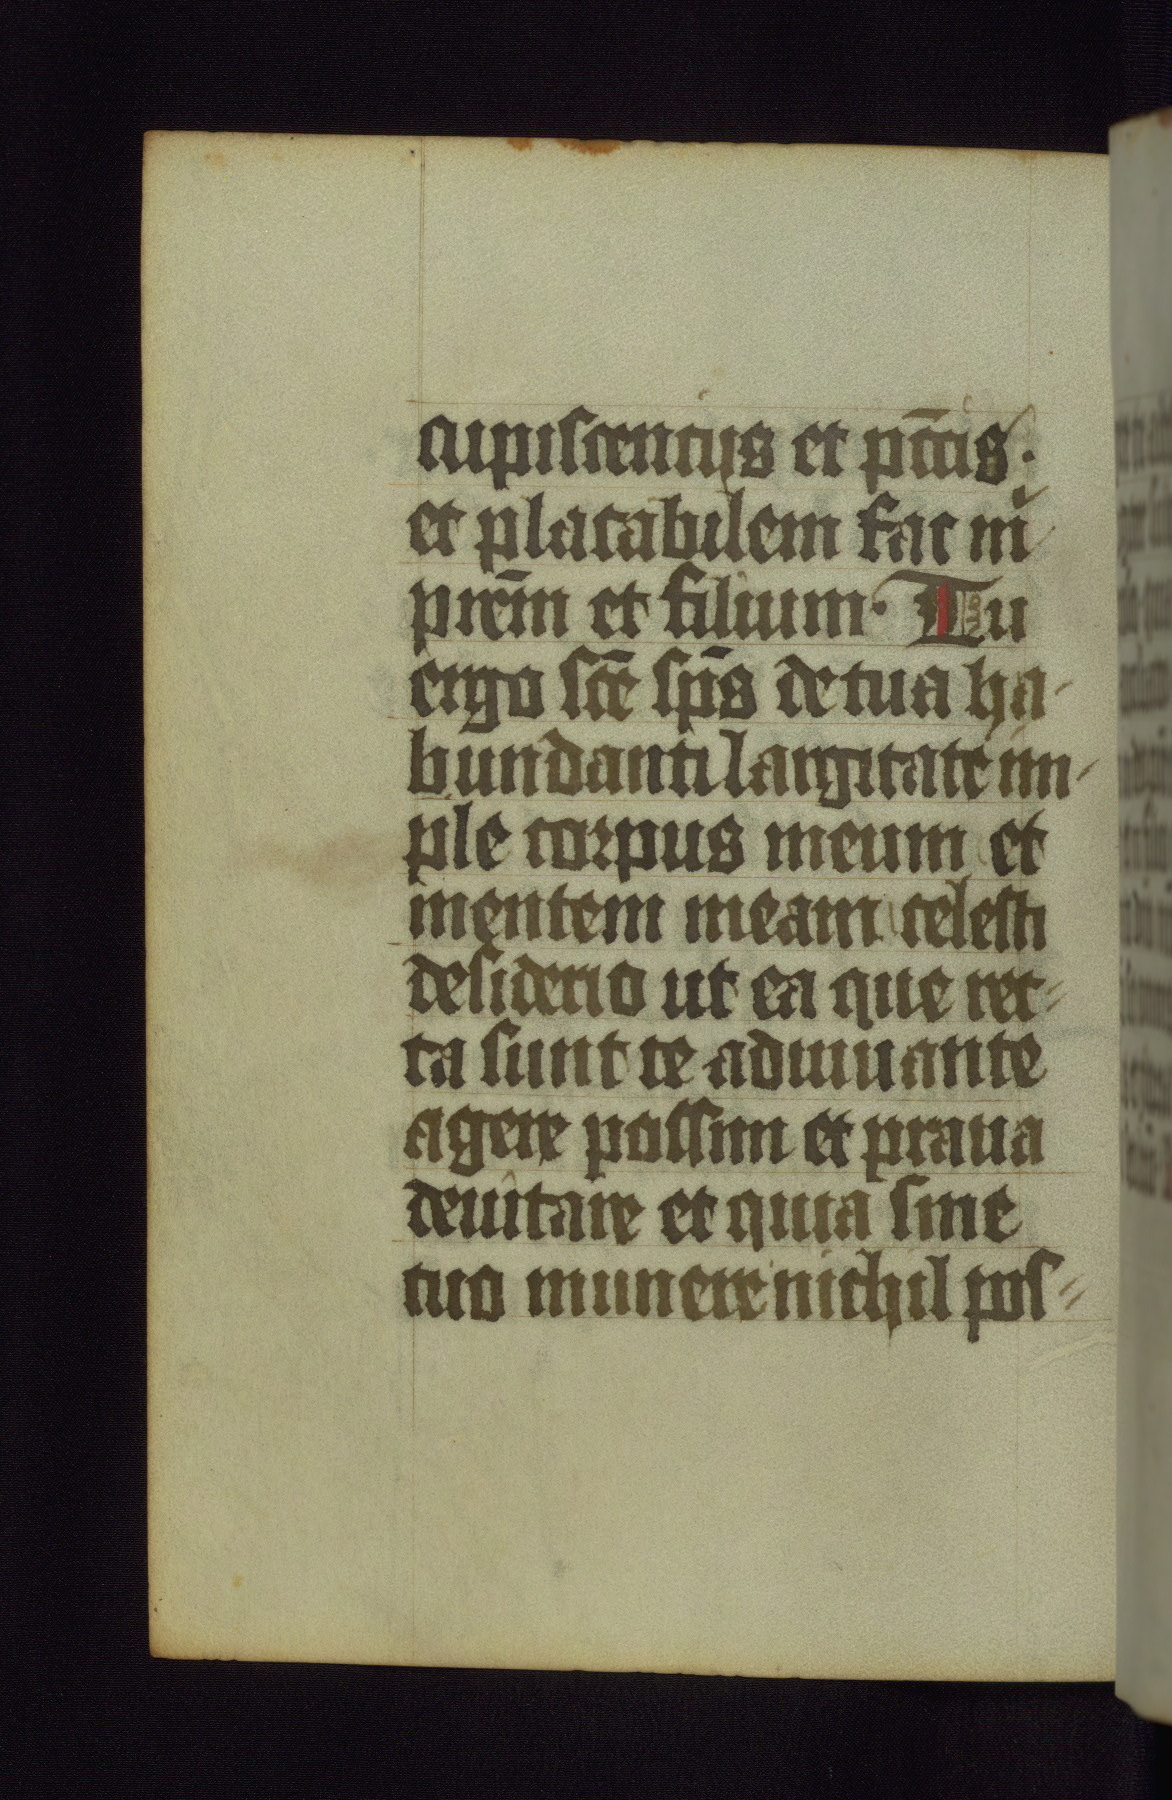 cupiscencijs et pccīs.
et placabilem fac mi
prem̄ et filium. Tu
ergo sce̅ sps̅ de tua ha-
bundanti largitate im-
ple corpus meum et
mentem meam celesti
desiderio ut ea que rec-
ta sunt te adiuuante
agere possim et praua
deuitare et quia sine
tuo munere nichil pos-